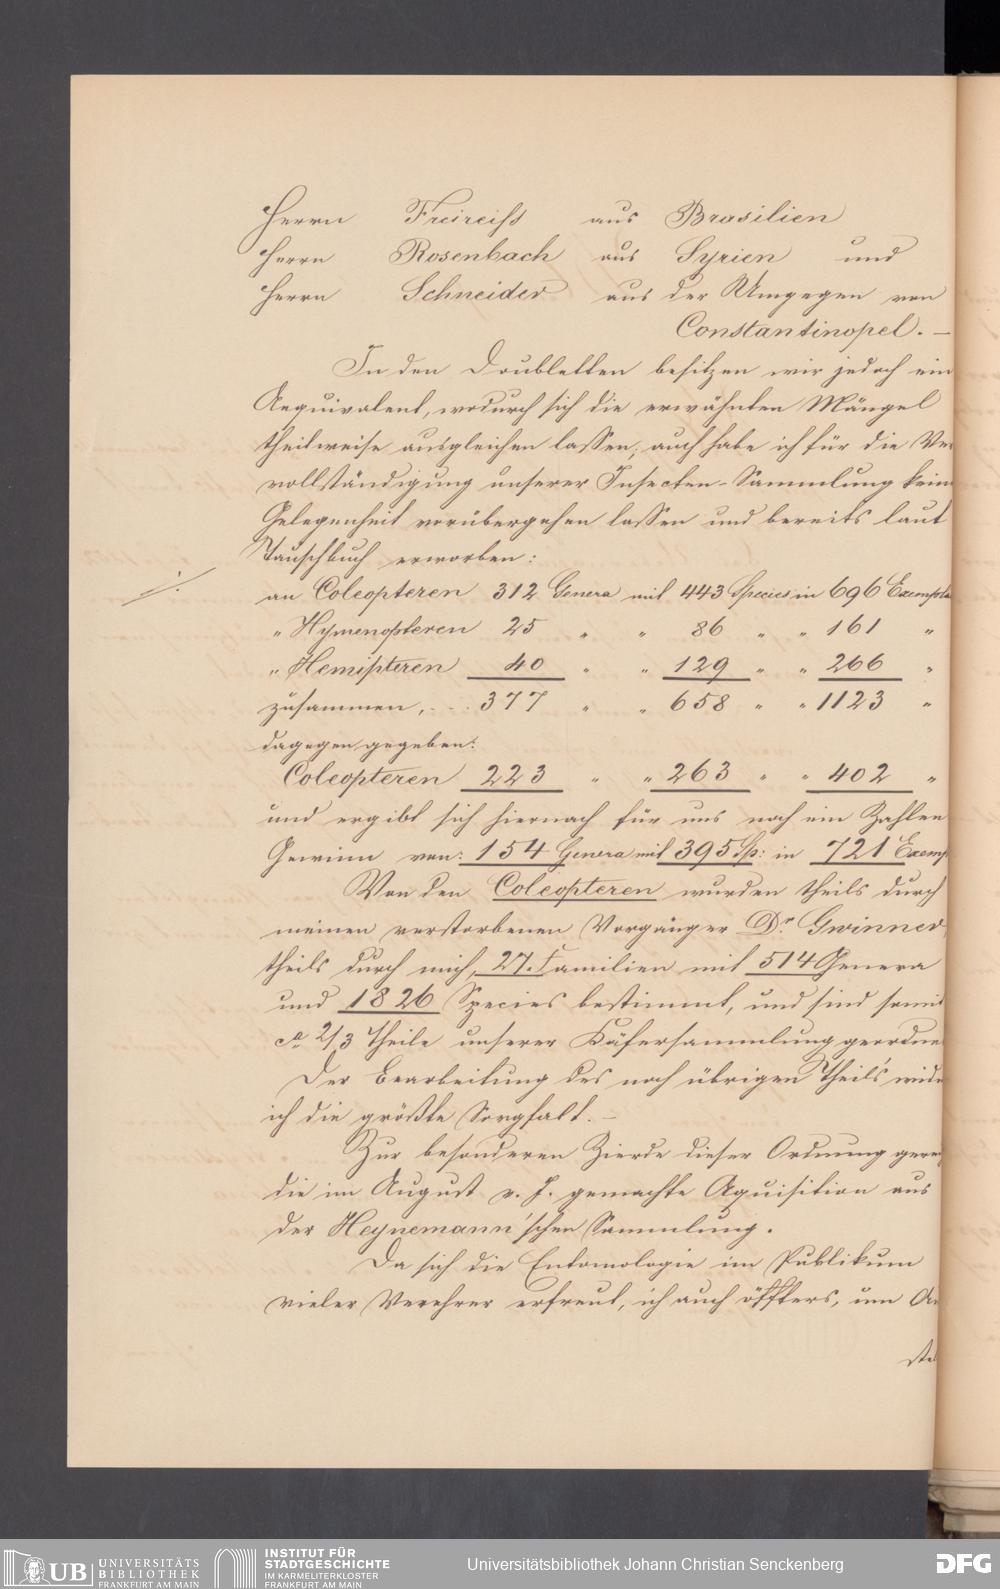 Herrn Freireiss aus Brasilien
Herrn Rosenbach aus Syrien und
Herrn Schneider aus der Umgegen von
Constantinopel. —
In den Doubletten besitzen wir jedoch ein
Aequivalent, wodurch sich die erwähnten Mängel
theilweise ausgleichen lassen; auch habe ich für die Ver
vollständigung unserer Insecten-Sammlung kein
Gelegenheit vorübergehen lassen und bereits laut
Tauschbuch erworben:
an Coleopteren 312 Genera mit 443 Species in 696 Exempla
" Hymenopteren 25 " " 86 " " 161 "
" Hemipteren 40 " " 129 " " 266 "
zusammen, - - . 377 " " 658 " " 1123 "
dagegen gegeben:
Coleopteren 223 " " 263 " " 402 "
und ergibt sich hiernach für uns noch ein Zahlen
Gewinn von: 154 Genera mit 395 Sp: in 721 Exemp
Von den Coleopteren wurden theils durch
meinen verstorbenen Vorgänger Dr. Gwinner,
theils durch mich, 27. Familien mit 514 Genera
und 1826 Species bestimmt, und sind somit
ca 2/3 Theile unserer Käfersammlung geordne
Der Bearbeitung des noch übrigen Theils wid
ich die größte Sorgfalt. —
Zur besonderen Zierde dieser Ordnung gerei
die im August v. J. gemachte Aquisition aus
der Heynemann'schen Sammlung.
Da sich die Entomologie im Publikum
vieler Verehrer erfreut, ich auch öffters, um An
ste
UB UNIVERSITÄTS
BIBLIOTHEK
FRANKFURT AM MAIN
INSTITUT FÜR
STADTGESCHICHTE
IM KARMELITERKLOSTER
FRANKFURT AM MAIN
Universitätsbibliothek Johann Christian Senckenberg
DFG